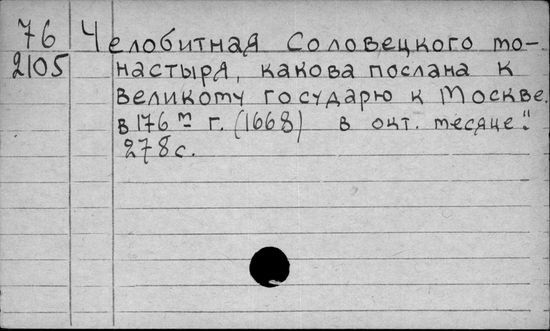 76 Челобитная Соловецкого мо-
2105 настыря, какова послана к
великому государю к Москве
в 176 м г. (1668) в окт. месяце."
278 с.